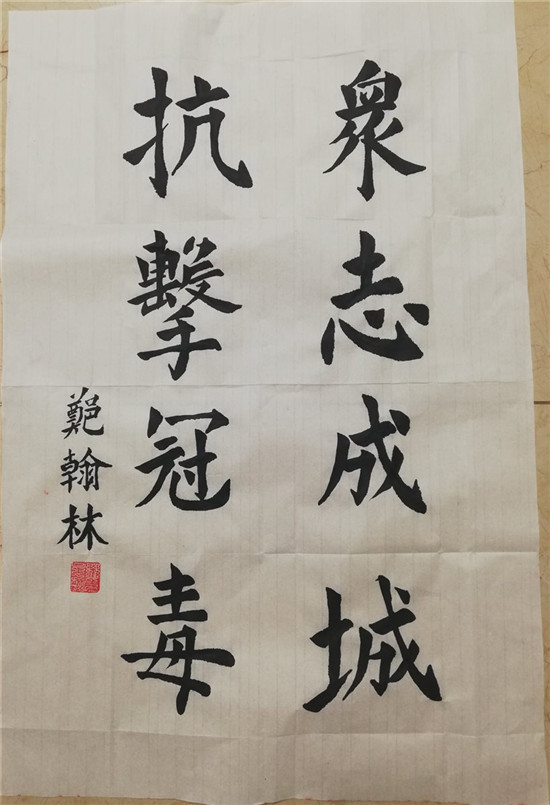 眾志成城
抗擊冠毒
鄭翰林